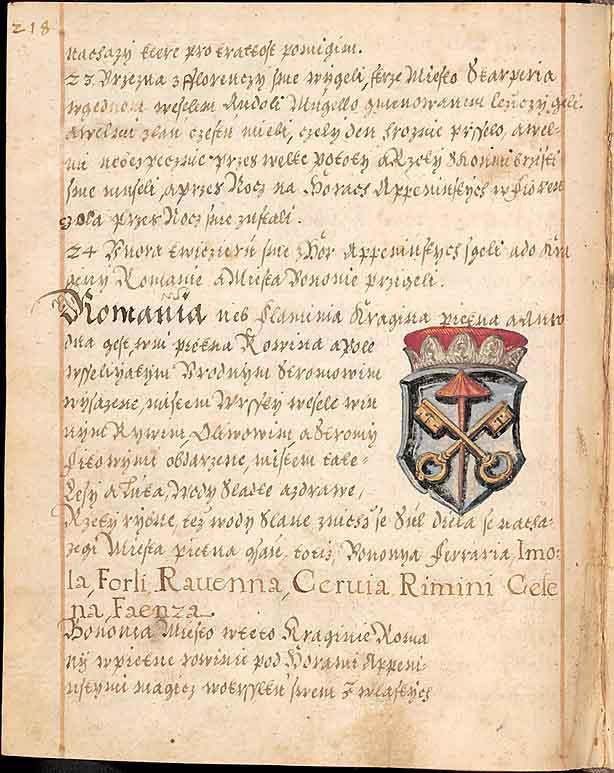 218
nachazy ktere pro kratkost pomigim.
23 Vrzezna z Florenczy sme wygeli, skrze Miesto Skarperia
w gednom weselem Audoli Mugello gmenowanem lezyczy geli.
a welmi zlau czestu mieli, czely den hrozne prsselo, a wel-
mi nebezpecznie przes welke potoky a Rzeky
sme museli, a przes Nocz na Horach Appeninskych w Fioren
zola przes Nocz sme zustali.
24 Vnora k wiczeru sme z Hor Appeninskych sgeli a do Kra
geny Romanie a Miesta Bononie przigeli.
Romania neb Flaminia Kragina piekna a
dna gest, tom piekna Rowina a Pole
wsselyakym Vrodnym Stromowim
wysazene, mistem Wrssky wesele win
nym Olivowim a Stromy
Fikowymi obdarzene, mistem take
Lesy a Luka, Wody Sladke a zdrawe,
Rzeky rybne, tez wody Slane z nichz se Sul diela se nacha-
zegi Miesta piekna gsau totiz, Bononya Ferraria, Imo-
la, Forli, Rauenna, Ceruia, Rimini Cese
na, Faenza
Bononia Miesto w teto Kraginie Roma
ny w piekne rowinie pod Horami Appeni-
nskymi magicz wokrssku swem 7 wlaskych